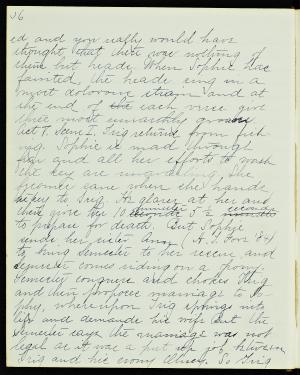 36
ed and you really would have
thought that there was nothing of
them but heads. When Sophie has
fainted, the heads sing in a
most dolorous strain and at
the end of the each verse give
three most unearthly groans.
Act V. Scene I. Trig returns from fish-
ing. Sophie is mad through
fear and all her efforts to wash
the key are unavailing. She
becomes sane when she hands
the key to Trig. He glares at her and
there give her 10 minutes 3 ½ seconds
to prepare for death. But Sophie
sends her sister Ann (A. T. '84)
to bring Semester to her rescue and
Semester comes riding on a pony.
Semester conquers and chokes Trig
and then proposes marriage to So-
phy, whereupon Trig springs into
life and demands his wife. But the
Semester says the marriage was not
legal as it was a put up job between
Trig and his crony. So Trig